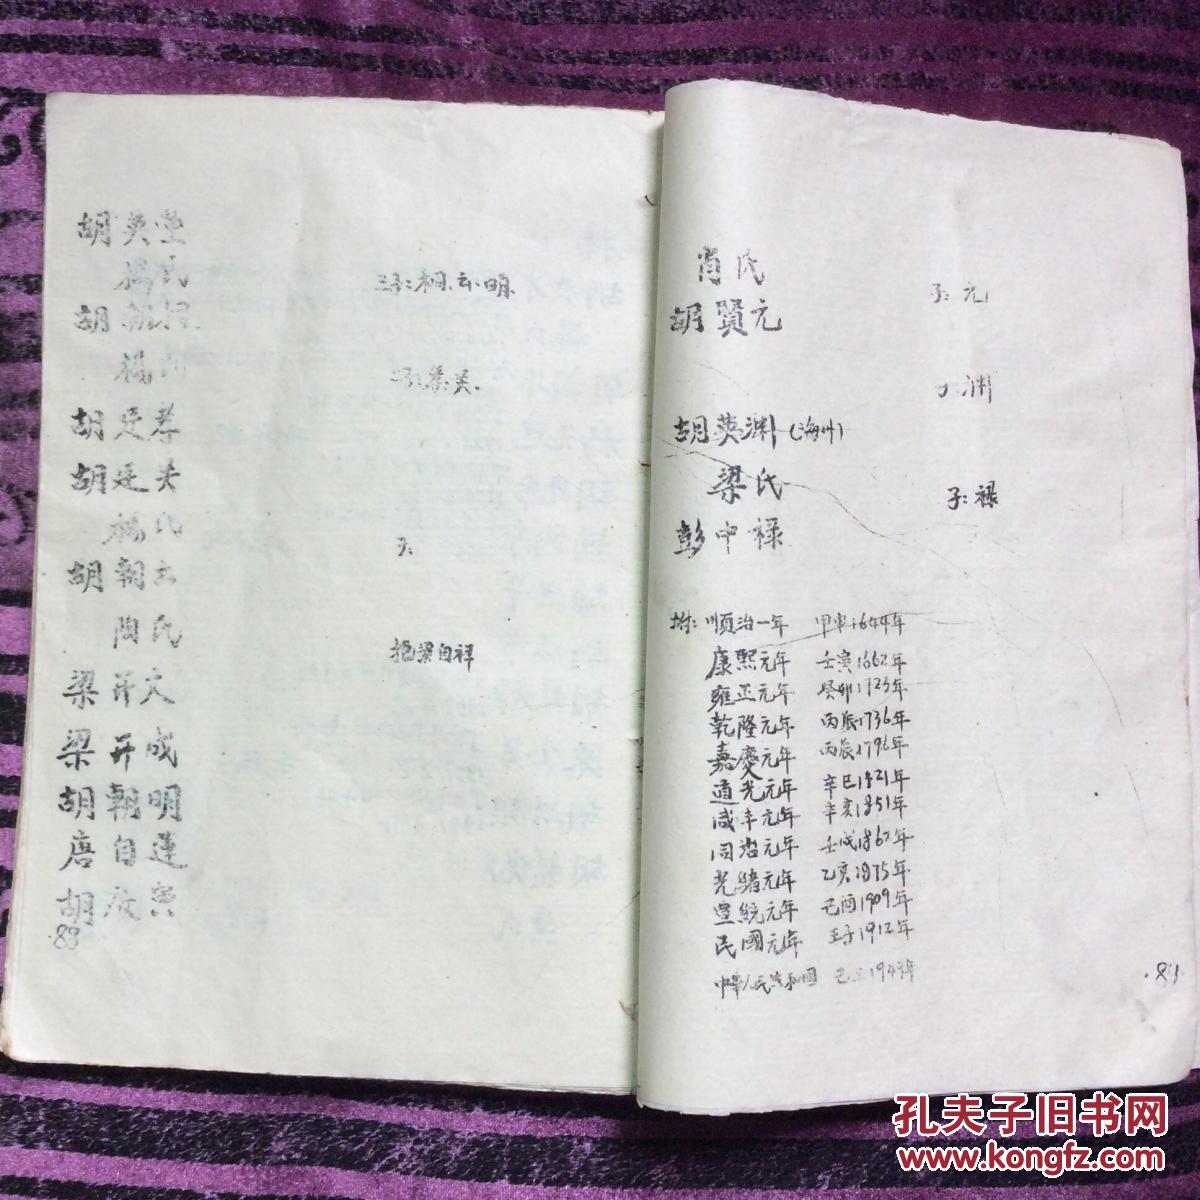 胡英堂
楊氏
三子:桐.云.明.
胡朝桐
楊氏
胡廷孝
胡廷关
楊氏
胡朝云
陶氏
抱梁自祥
梁开文
梁开成
胡朝明
唐自莲
胡成寅
88
肖氏
子:元
胡賢元
子:渊
胡英渊(海州)
梁氏
子:禄
彭中禄
附:順治一年 甲申1644年
康熙元年 壬寅1662年
雍正元年 癸卯1723年
乾隆元年 丙辰1736年
嘉慶元年 丙辰1796年
道光元年 辛巳1821年
咸丰元年 辛亥1851年
同治元年 壬戌1862年
光緒元年 乙亥1875年
宣統元年 己酉1909年
民國元年 壬子1912年
中華人民共和國 己丑1949年
89
孔夫子旧书网
www.kongfz.com